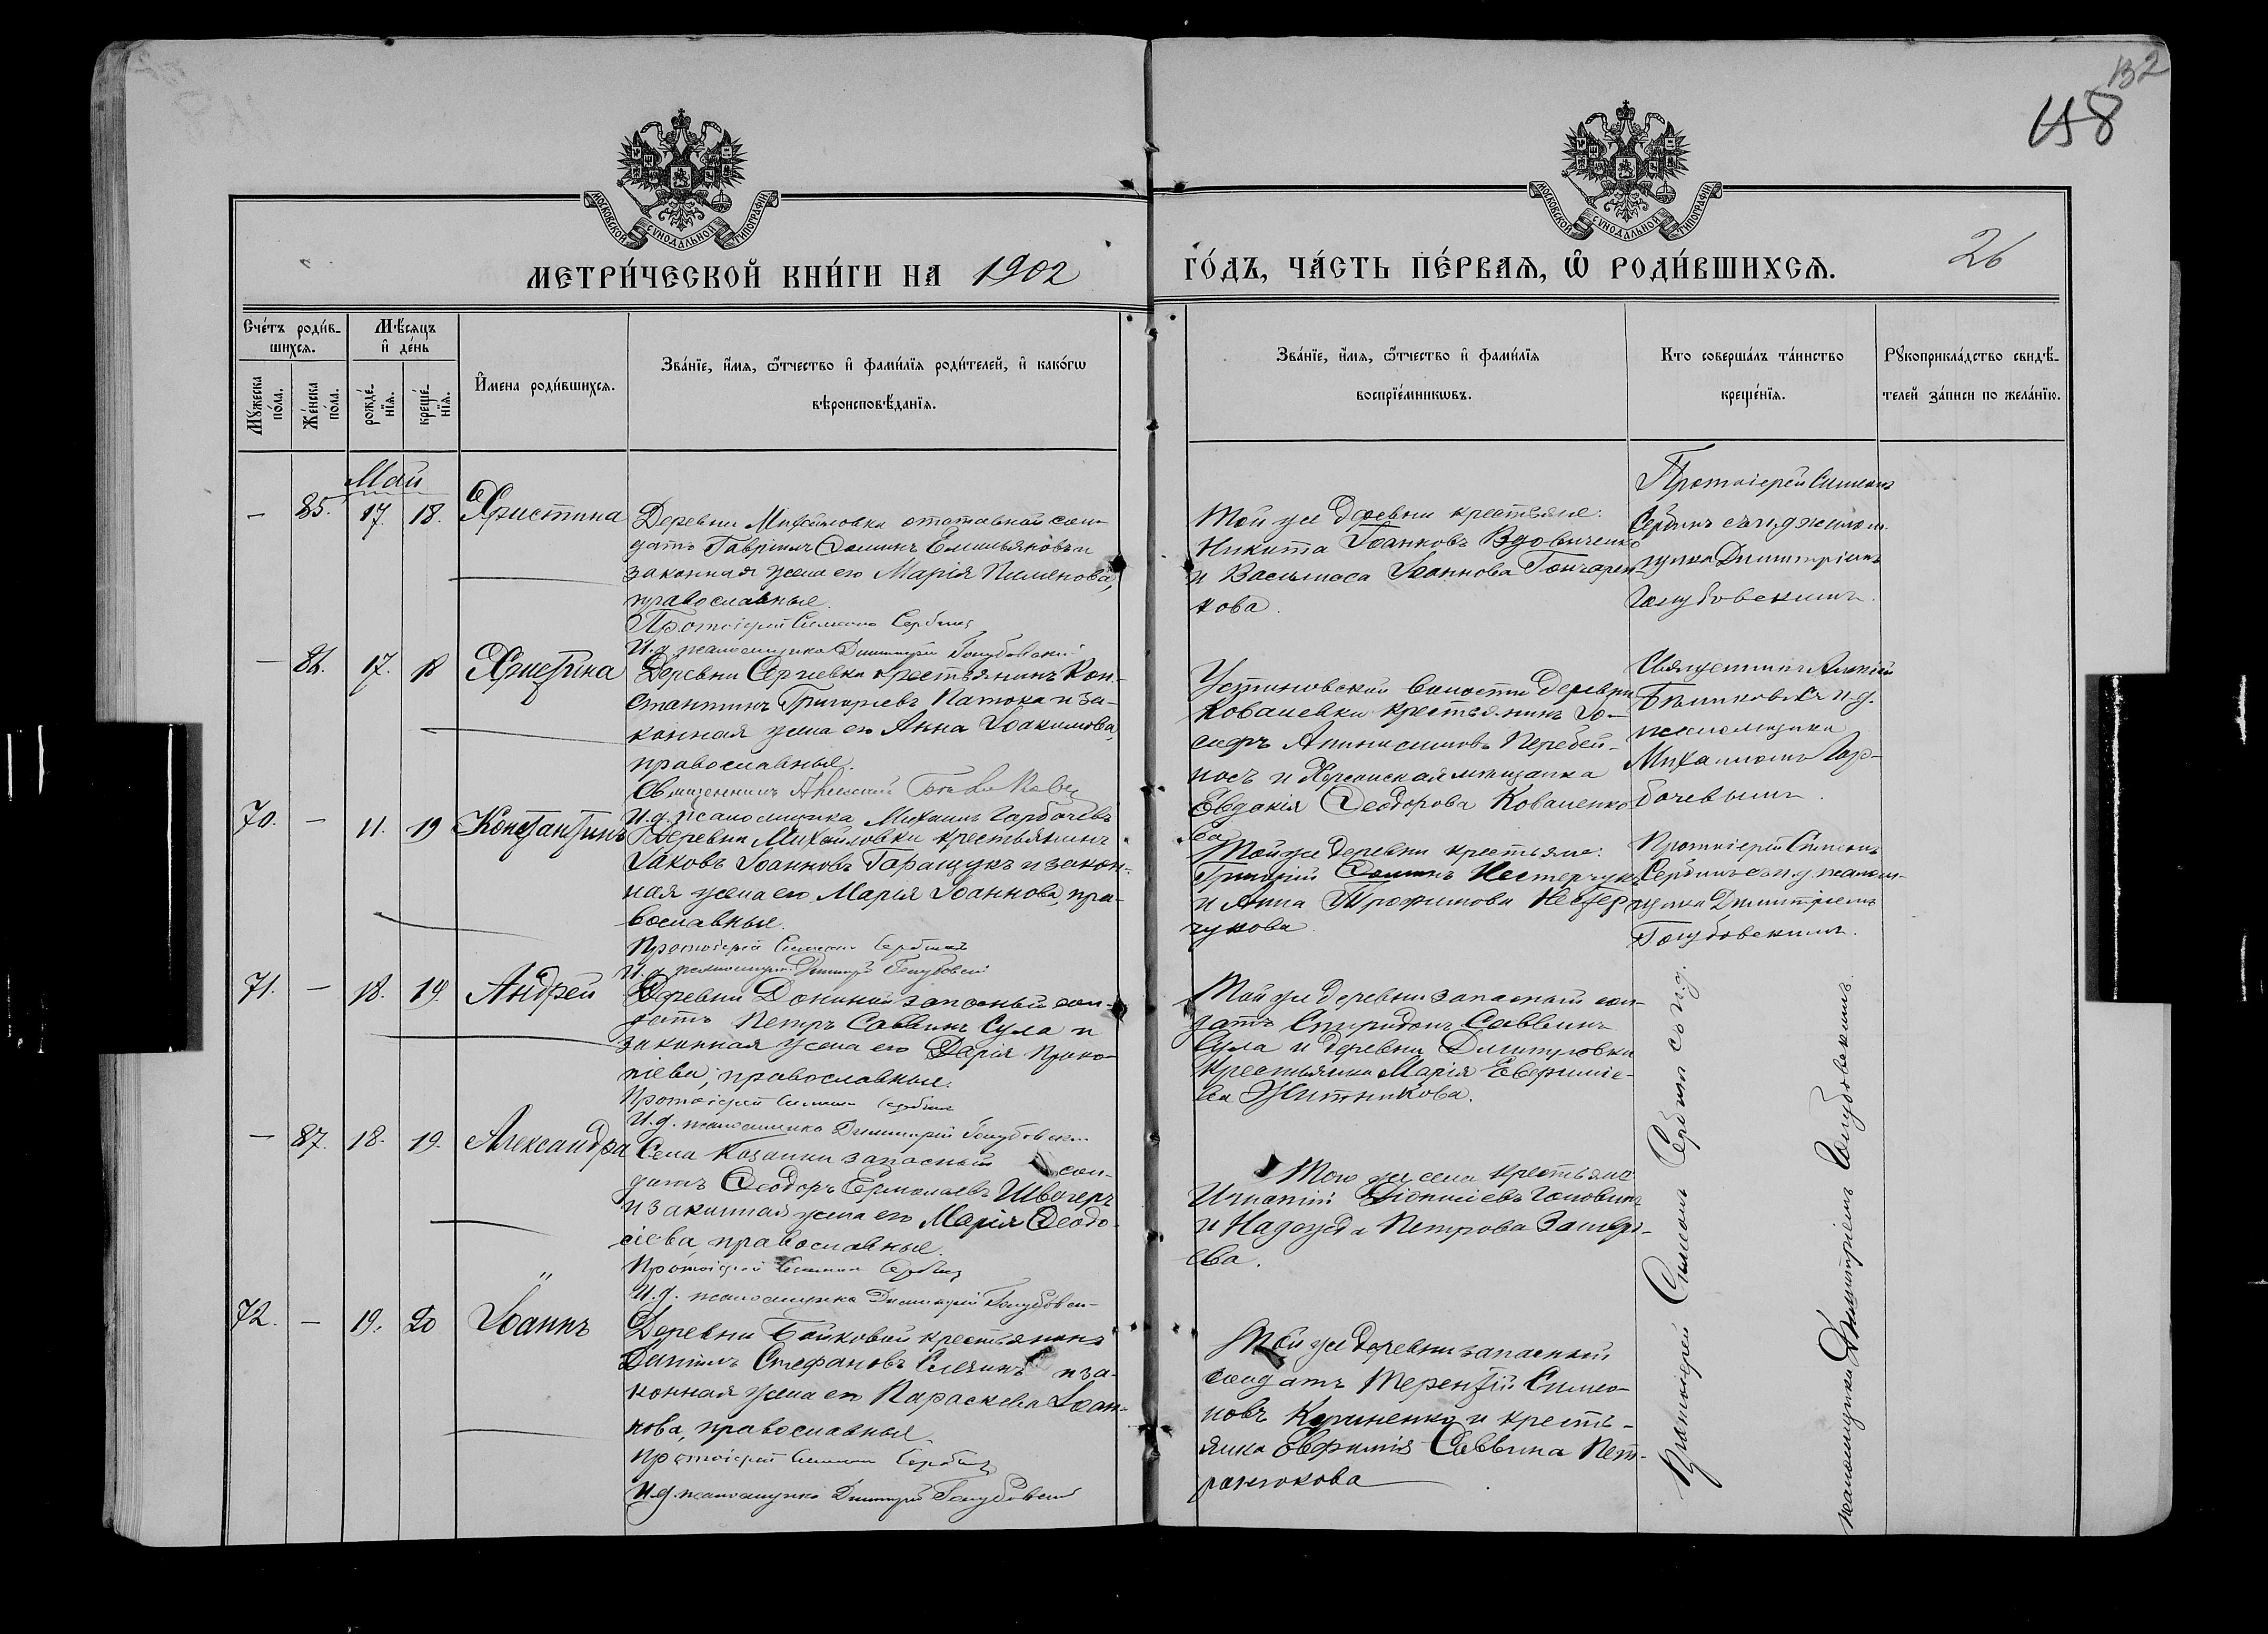 132
158
МОСКОВСКОЙ СѴНОДАЛЬНОЙ ТИПОГРАФІИ
МОСКОВСКОЙ СѴНОДАЛЬНОЙ ТИПОГРАФІИ
МЕТРИ́ЧЕСКОЙ КНИ́ГИ НА 1902
ГО́ДЪ, ЧА́СТЬ ПЕ́РВАѦ, Ѡ РОДИ́ВШИХСѦ.
26
Сче́тъ роди́в-
шихсѧ.
Мѣ́сяцъ
и҆ де́нь
Мꙋ́жеска
по́ла.
Же́нска
по́ла.
рожде́-
нїѧ.
креще́-
нїѧ.
И҆мена роди́вшихсѧ.
Зва́нїе, и҆́мѧ, ѻ҆́тчество и҆ фами́лїѧ роди́телей, и҆ како́гѡ
вѣроисповѣ́данїѧ.
Зва́нїе, и҆́мѧ, ѻ҆́тчество и҆ фами́лїѧ
воспрїе́мникѡвъ.
Кто соверша́лъ та́инство
креще́нїѧ.
Рꙋкоприкла́дство свидѣ́-
телей за́писи по жела́нїю.
Май
— 85. 17. 18. Христина
Деревни Михайловки отставной сол-
датъ Гавріилъ Ѳоминъ Емельяновъ и
законная жена его Марія Пименова,
православные.
Протоіерей Симеонъ Сербинъ
И.д. псаломщика Димитрій Голубовскій
Той же деревни крестьяне:
Никита Іоанновъ Вдовиченко
и Василиса Іоаннова Гончарен-
кова.
Протоіерей Симеонъ
Сербинъ съ и.д. псалом-
щика Димитріемъ
Голубовскимъ.
— 86. 17. 18 Христина
Деревни Сергѣевки крестьянинъ Кон-
стантинъ Григорьевъ Патока и за-
конная жена его Анна Іоакимова,
православные.
Священникъ Алексій
И.д. псаломщика Михаилъ Горбачевъ
Устиновской волости деревни
Ковалевки крестьянинъ Іо-
сифъ Анисимовъ Перебей-
носъ и Херсонская мѣщанка
Евдокія Ѳеодорова Коваленко-
ва
Священникъ Алексій
съ и.д.
псаломщика
Михаиломъ Гор-
бачевымъ.
70. — 11. 19 Константинъ
Деревни Михайловки крестьянинъ
Іаковъ Іоанновъ Гаращукъ и закон-
ная жена его Марія Іоаннова, пра-
вославные.
Протоіерей Симеонъ Сербинъ
И.д. псаломщика Димитрій Голубовскій
Той же деревни крестьяне:
Григорій Ѳоминъ Нестерчукъ
и Анна Трофимова Нестер-
чукова
Протоіерей Симеонъ
Сербинъ съ и.д. псалом-
щика Димитріемъ
Голубовскимъ.
71. — 18. 19. Андрей
Деревни Дониной запасный сол-
датъ Петръ Саввинъ Сула и
законная жена его Дарія Проко-
піева, православные.
Протоіерей Симеонъ Сербинъ
И.д. псаломщика Димитрій Голубовскій
Той же деревни запасный сол-
датъ Спиридонъ Саввинъ
Сула и деревни Димитровки
крестьянка Марія Евфиміе-
ва Житникова.
— 87. 18. 19. Александра
Села Козанки запасный сол-
датъ Ѳеодоръ Ермолаевъ Швогеръ
и законная жена его Марія Ѳеодо-
сіева православные.
Протоіерей Симеонъ Сербинъ
И.д. псаломщика Димитрій Голубовскій
Того же села крестьяне
Игнатій Діонисіевъ Головинъ
и Надежда Петрова
ева.
72. — 19. 20 Іоаннъ
Деревни Бойковой крестьянинъ
Даніилъ Стефановъ и за-
конная жена его Параскева Іоан-
нова, православные
Протоіерей Симеонъ Сербинъ
И.д. псаломщика Димитрій Голубовскій
Той же деревни запасный
солдатъ Терентій Симео-
новъ Куриненко и кресть-
янка Евфимія Саввина Пет-
ранюкова
Протоіерей Симеонъ Сербинъ съ и.д.
псаломщика Димитріемъ Голубовскимъ.